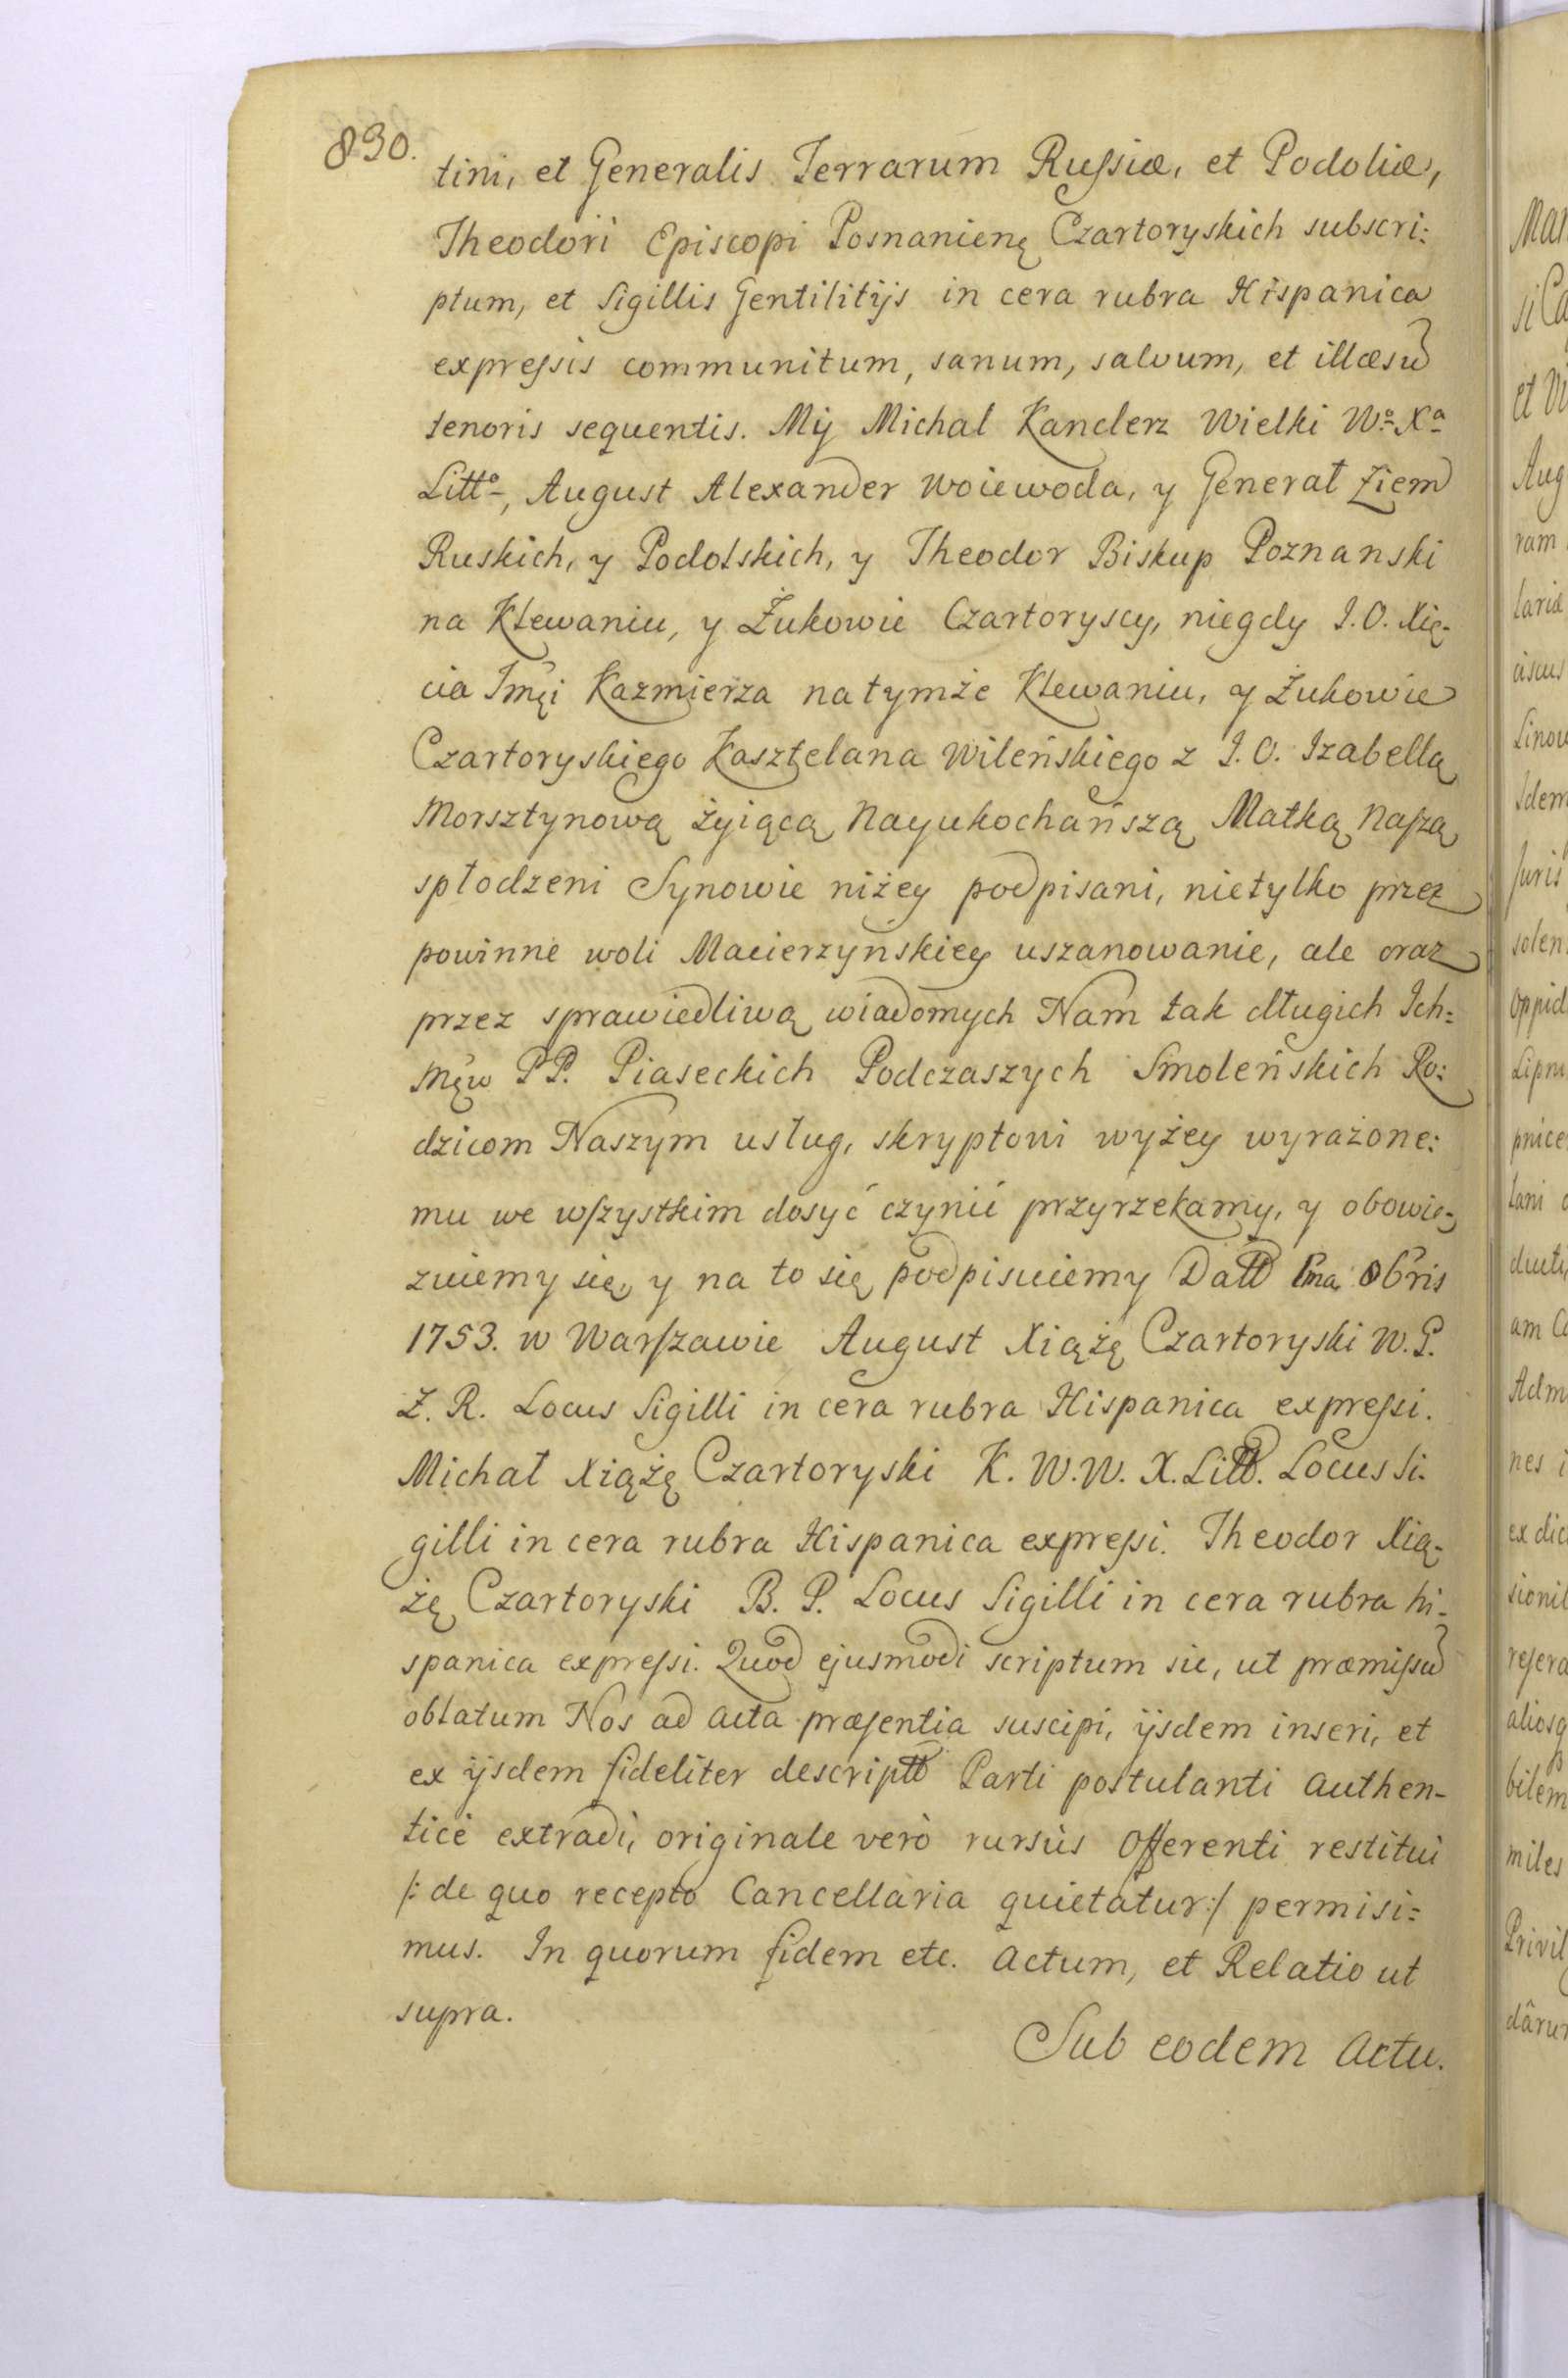 830.
tini, et Generalis Terrarum Russiæ, et Podoliæ,
Theodori Episcopi Posnanienę Czartoryskich subscri:
ptum, et Sigillis Gentilitijs in cera rubra Hispanica
expressis communitum, sanum, salvum, et illæsū
tenoris sequentis. My Michal Kanclerz Wielki Wº Xª
Littº, August Alexander Woiewoda, y Generał Ziem
Ruskich, y Podolskich, y Theodor Biskup Poznanski
na Klewaniu, y Żukowie Czartoryscy, niegdy I.O. Xię-
cia Imęi Kazmierza na tymże Klewaniu, y Żukowie
Czartoryskiego Kasztelana Wileńskiego z I.O. Izabellą
Morsztynową żyiącą Nayukochańszą Matką Naszą
spłodzeni Synowie niżey podpisani, nietylko przez
powinne woli Macierzyńskiey uszanowanie, ale oraz
przez sprawiedliwą wiadomych Nam tak długich Ich:
męw PP. Piaseckich Podczaszych Smoleńskich Ro:
dzicom Naszym usług, skryptowi wyżey wyrażone:
mu we wszystkim dosyć czynić przyrzekamy, y obowią-
zuiemy się, y na to się podpisuiemy Datt 1ma Obris
1753. w Warszawie August Xiążę Czartoryski W. G.
Z. R. Locus Sigilli in cera rubra Hispanica expressi.
Michał Xiążę Czartoryski K. W. W. X. Litt. Locus Si-
gilli in cera rubra Hispanica expressi. Theodor Xią-
żę Czartoryski B. P. Locus Sigilli in cera rubra hi-
spanica expressi. Quod ejusmodi scriptum sic, ut præmissū
oblatum Nos ad acta præsentia suscipi, ijsdem inseri, et
ex ijsdem fideliter descriptt Parti postulanti authen-
ticè extradi, originale verò rursùs Offerenti restitui
/: de quo recepto Cancellaria quietatur :/ permisi=
mus. In quorum fidem etc. Actum, et Relatio ut
supra.
Sub eodem Actu.